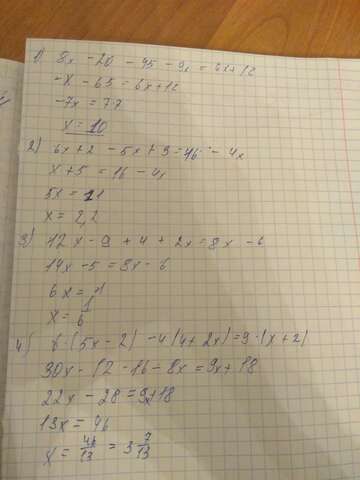 1) 8x - 20 - 45 - 9x = 6x + 12
-x - 65 = 6x + 12
-7x = 77
x = 10
2) 6x + 2 - 5x + 3 = 16 - 4x
x + 5 = 16 - 4x
5x = 11
x = 2,2
3) 12x - 9 + 4 + 2x = 8x - 6
14x - 5 = 8x - 6
6x = 1
x = 6
4) 6 · (5x - 2) - 4(4 + 2x) = 9 · (x + 2)
30x - 12 - 16 - 8x = 9x + 18
22x - 28 = 9x + 18
13x = 46
x = 46/13 = 3 7/13